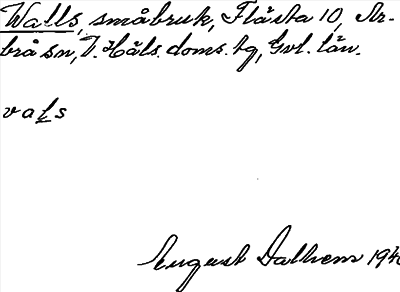 Walls, småbruk, Flästa 10, Ar-
brå sn, V. Häls. doms. tg, Gvl. län.
vaḻs
August Dalhem 194